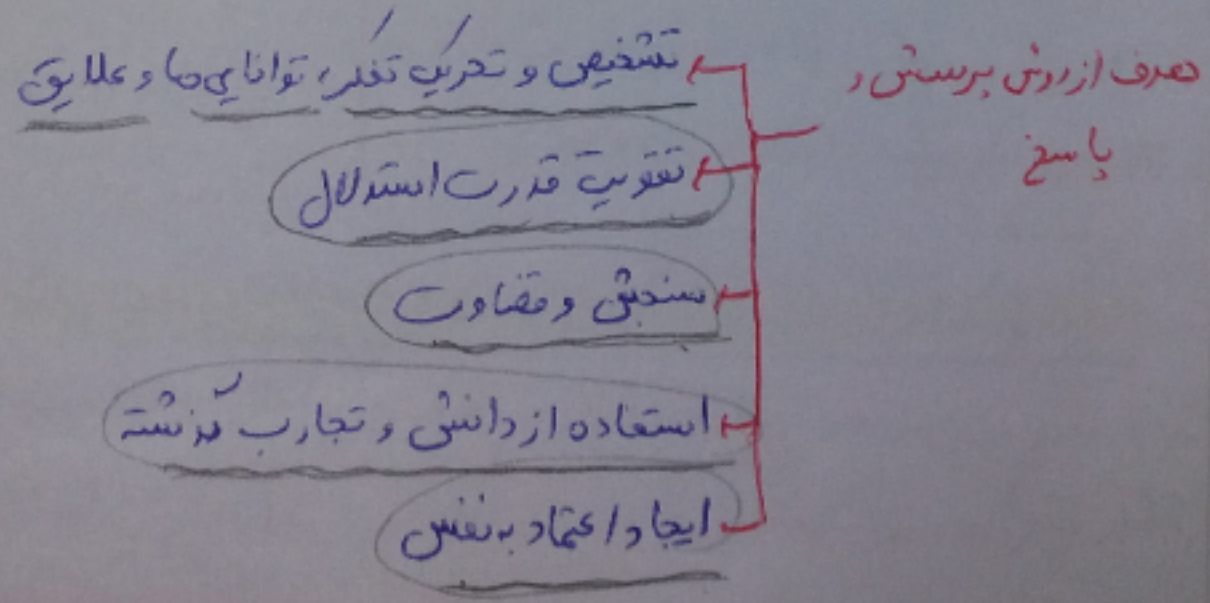 هدف از روش پرسش و
پاسخ
تشخیص و تحریک تفکر، توانایی‌ها و علایق
تقویت قدرت استدلال
سنجش و قضاوت
استفاده از دانش و تجارب گذشته
ایجاد اعتماد به نفس